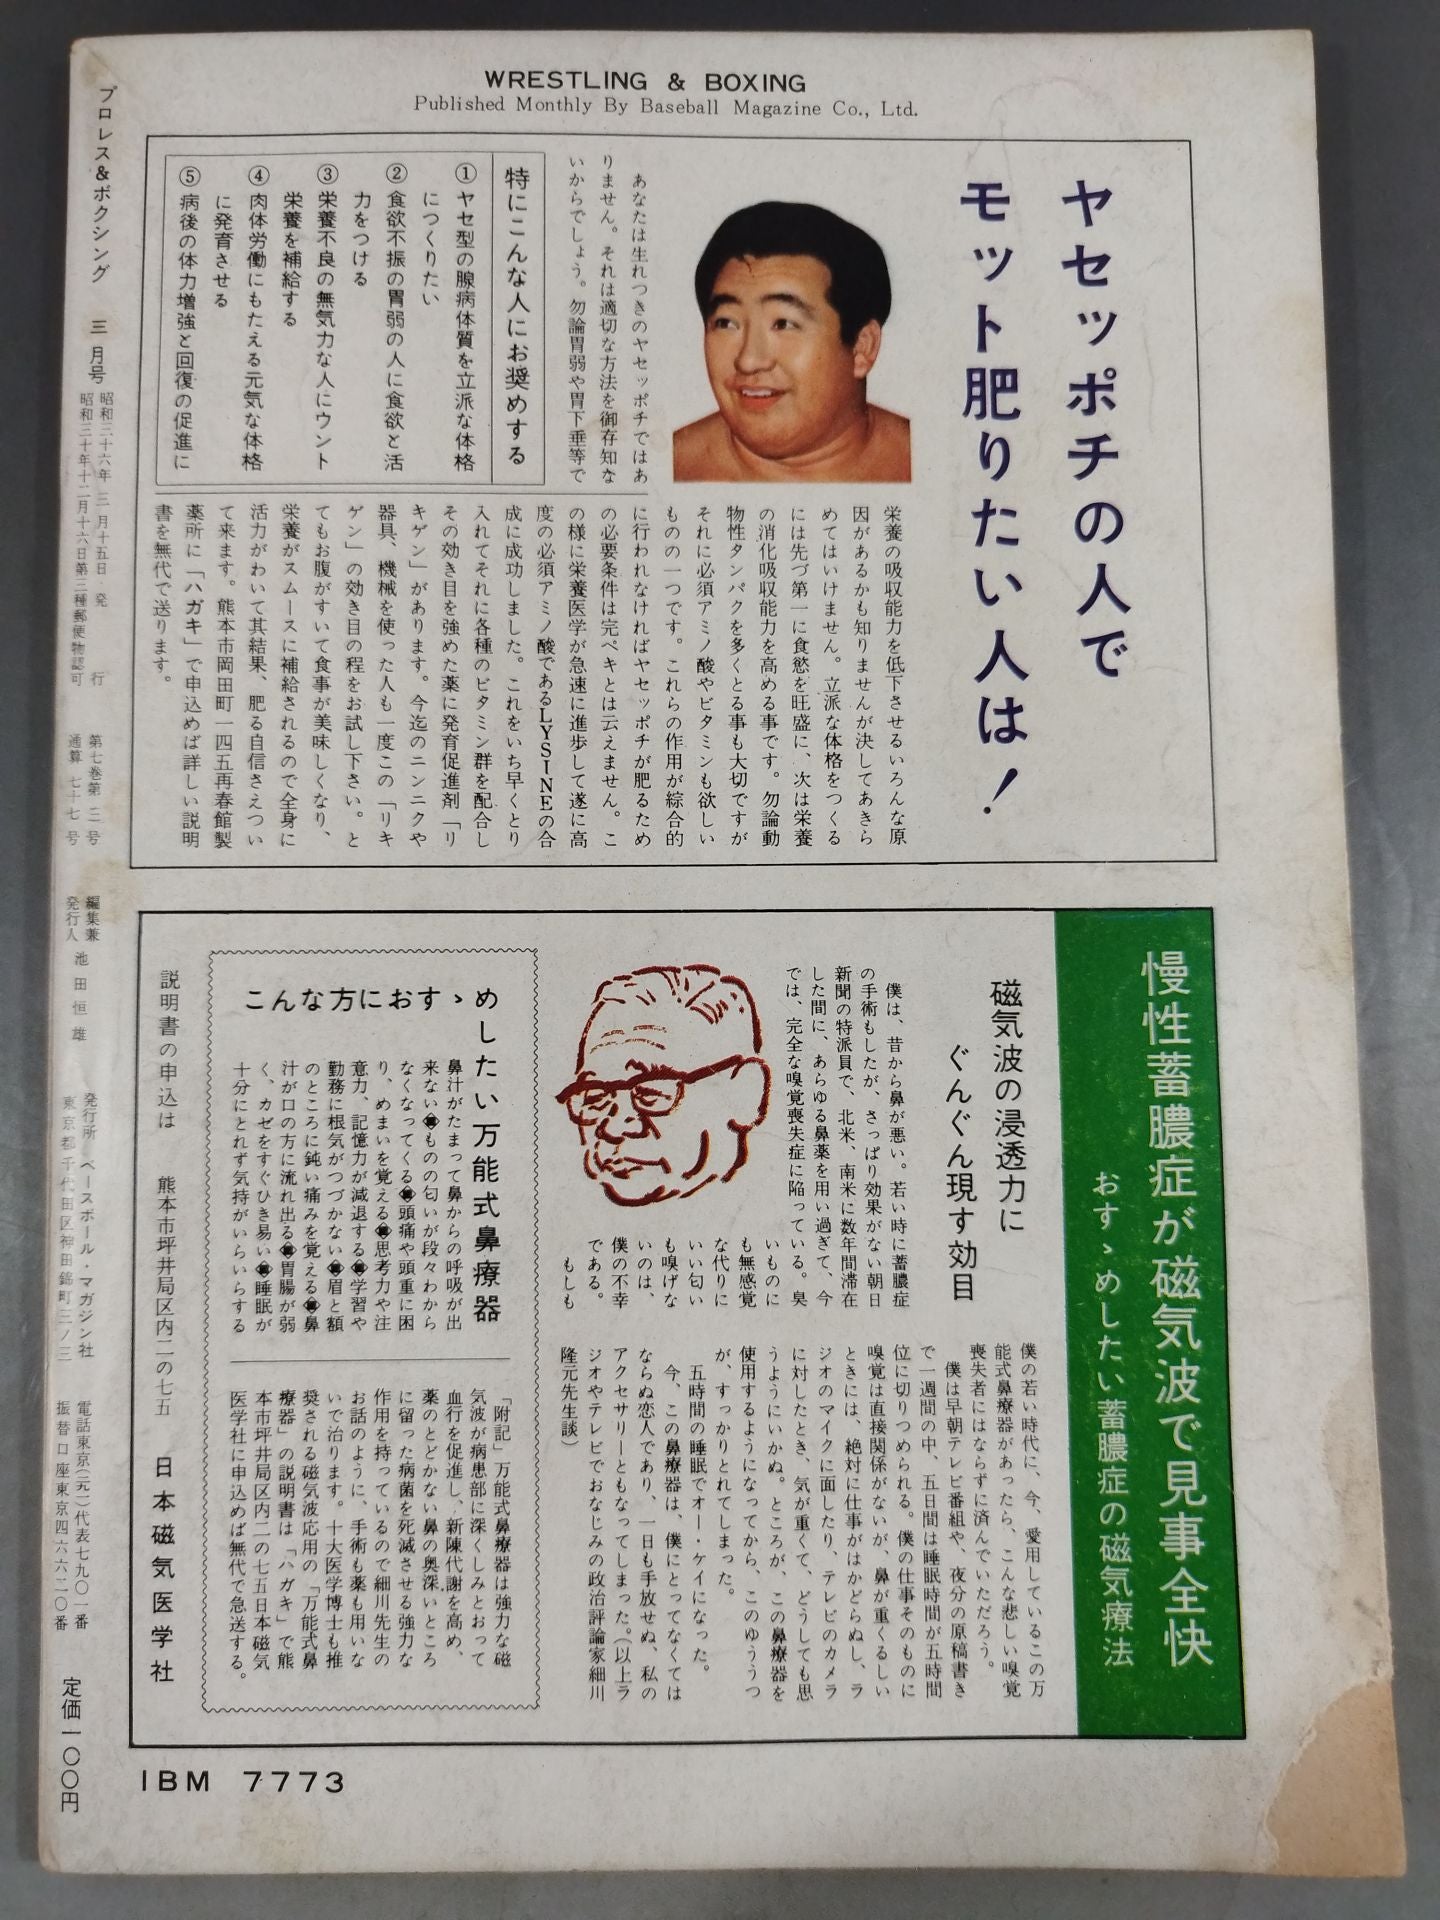 WRESTLING & BOXING
Published Monthly By Baseball Magazine Co., Ltd.
ヤセッポチの人で
モット肥りたい人は!
あなたは生れつきのヤセッポチではあ
りません。それは適切な方法を御存知な
いからでしょう。勿論胃弱や胃下垂等で
栄養の吸収能力を低下させるいろんな原
因があるかも知りませんが決してあきら
めてはいけません。立派な体格をつくる
には先づ第一に食慾を旺盛に、次は栄養
の消化吸収能力を高める事です。勿論動
物性タンパクを多くとる事も大切ですが
それに必須アミノ酸やビタミンも欲しい
ものの一つです。これらの作用が綜合的
に行われなければヤセッポチが肥るため
の必要条件は完ペキとは云えません。こ
の様に栄養医学が急速に進歩して遂に高
度の必須アミノ酸であるLYSINEの合
成に成功しました。これをいち早くとり
入れてそれに各種のビタミン群を配合し
その効き目を強めた薬に発育促進剤「リ
キゲン」があります。今迄のニンニクや
器具、機械を使った人も一度この「リキ
ゲン」の効き目の程をお試し下さい。と
てもお腹がすいて食事が美味しくなり、
栄養がスムースに補給されるので全身に
活力がわいて其結果、肥る自信さえつい
て来ます。熊本市岡田町一四五再春館製
薬所に「ハガキ」で申込めば詳しい説明
書を無代で送ります。
特にこんな人にお奨めする
①ヤセ型の腺病体質を立派な体格
につくりたい
②食欲不振の胃弱の人に食欲と活
力をつける
③栄養不良の無気力な人にウント
栄養を補給する
④肉体労働にもたえる元気な体格
に発育させる
⑤病後の体力増強と回復の促進に
慢性蓄膿症が磁気波で見事全快
おすゝめしたい蓄膿症の磁気療法
磁気波の浸透力に
ぐんぐん現す効目
僕は、昔から鼻が悪い。若い時に蓄膿症
の手術もしたが、さっぱり効果がない朝日
新聞の特派員で、北米、南米に数年間滞在
した間に、あらゆる鼻薬を用い過ぎて、今
では、完全な嗅覚喪失症に陥っている。臭
いものに
も無感覚
な代りに
いい匂い
も嗅げな
いのは、
僕の不幸
である。
もしも
僕の若い時代に、今、愛用しているこの万
能式鼻療器があったら、こんな悲しい嗅覚
喪失者にはならずに済んでいただろう。
僕は早朝テレビ番組や、夜分の原稿書き
で一週間の中、五日間は睡眠時間が五時間
位に切りつめられる。僕の仕事そのものに
嗅覚は直接関係がないが、鼻が重くるしい
ときには、絶対に仕事がはかどらぬし、ラ
ジオのマイクに面したり、テレビのカメラ
に対したとき、気が重くて、どうしても思
うようにいかぬ。ところが、この鼻療器を
使用するようになってから、このゆううつ
が、すっかりとれてしまった。
五時間の睡眠でオー・ケイになった。
今、この鼻療器は、僕にとってなくては
ならぬ恋人であり、一日も手放せぬ、私の
アクセサリーともなってしまった。(以上ラ
ジオやテレビでおなじみの政治評論家細川
隆元先生談)
こんな方におすゝめしたい万能式鼻療器
鼻汁がたまって鼻からの呼吸が出
来ない◆ものの匂いが段々わから
なくなってくる◆頭痛や頭重に困
り、めまいを覚える◆思考力や注
意力、記憶力が減退する◆学習や
勤務に根気がつづかない◆眉と額
のところに鈍い痛みを覚える◆鼻
汁が口の方に流れ出る◆胃腸が弱
く、カゼをすぐひき易い◆睡眠が
十分にとれず気持がいらいらする
「附記」万能式鼻療器は強力な磁
気波が病患部に深くしみとおって
血行を促進し、新陳代謝を高め、
薬のとどかない鼻の奥深いところ
に留った病菌を死滅させる強力な
作用を持っているので細川先生の
お話のように、手術も薬も用いな
いで治ります。十大医学博士も推
奨される磁気波応用の「万能式鼻
療器」の説明書は「ハガキ」で熊
本市坪井局区内二の七五日本磁気
医学社に申込めば無代で急送する。
説明書の申込は 熊本市坪井局区内二の七五 日本磁気医学社
プロレス&ボクシング 三月号
昭和三十六年三月十五日・発行
昭和三十年十二月十六日第三種郵便物認可
第七巻第三号
通算 七十七号
編集兼
発行人 池田恒雄
発行所 ベースボール・マガジン社
東京都千代田区神田錦町三ノ三
電話東京(元二)代表七九〇一番
振替口座東京四六六二〇番
定価一〇〇円
IBM 7773